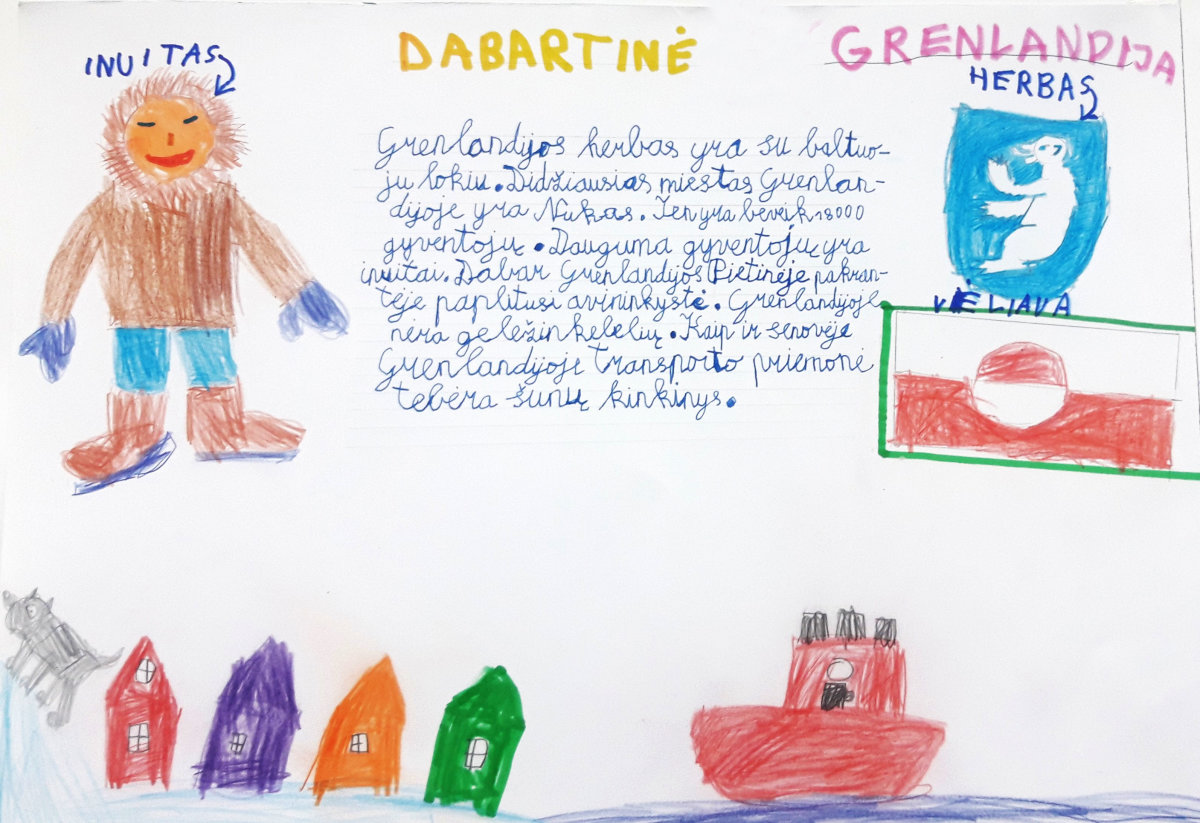 INUITAS
DABARTINĖ
GRENLANDIJA
HERBAS
Grenlandijos herbas yra su baltuo-
ju lokiu. Didžiausias miestas Grenlan-
dijoje yra Nukas. Ten yra beveik 18000
gyventojų. Dauguma gyventojų yra
inuitai. Dabar Grenlandijos Pietinėje pakran-
tėje paplitusi avininkystė. Grenlandijoje
nėra geležinkelelių. Kaip ir senovėje
Grenlandijoje transporto priemonė
tebėra šunų kinkinys.
VĖLIAVA